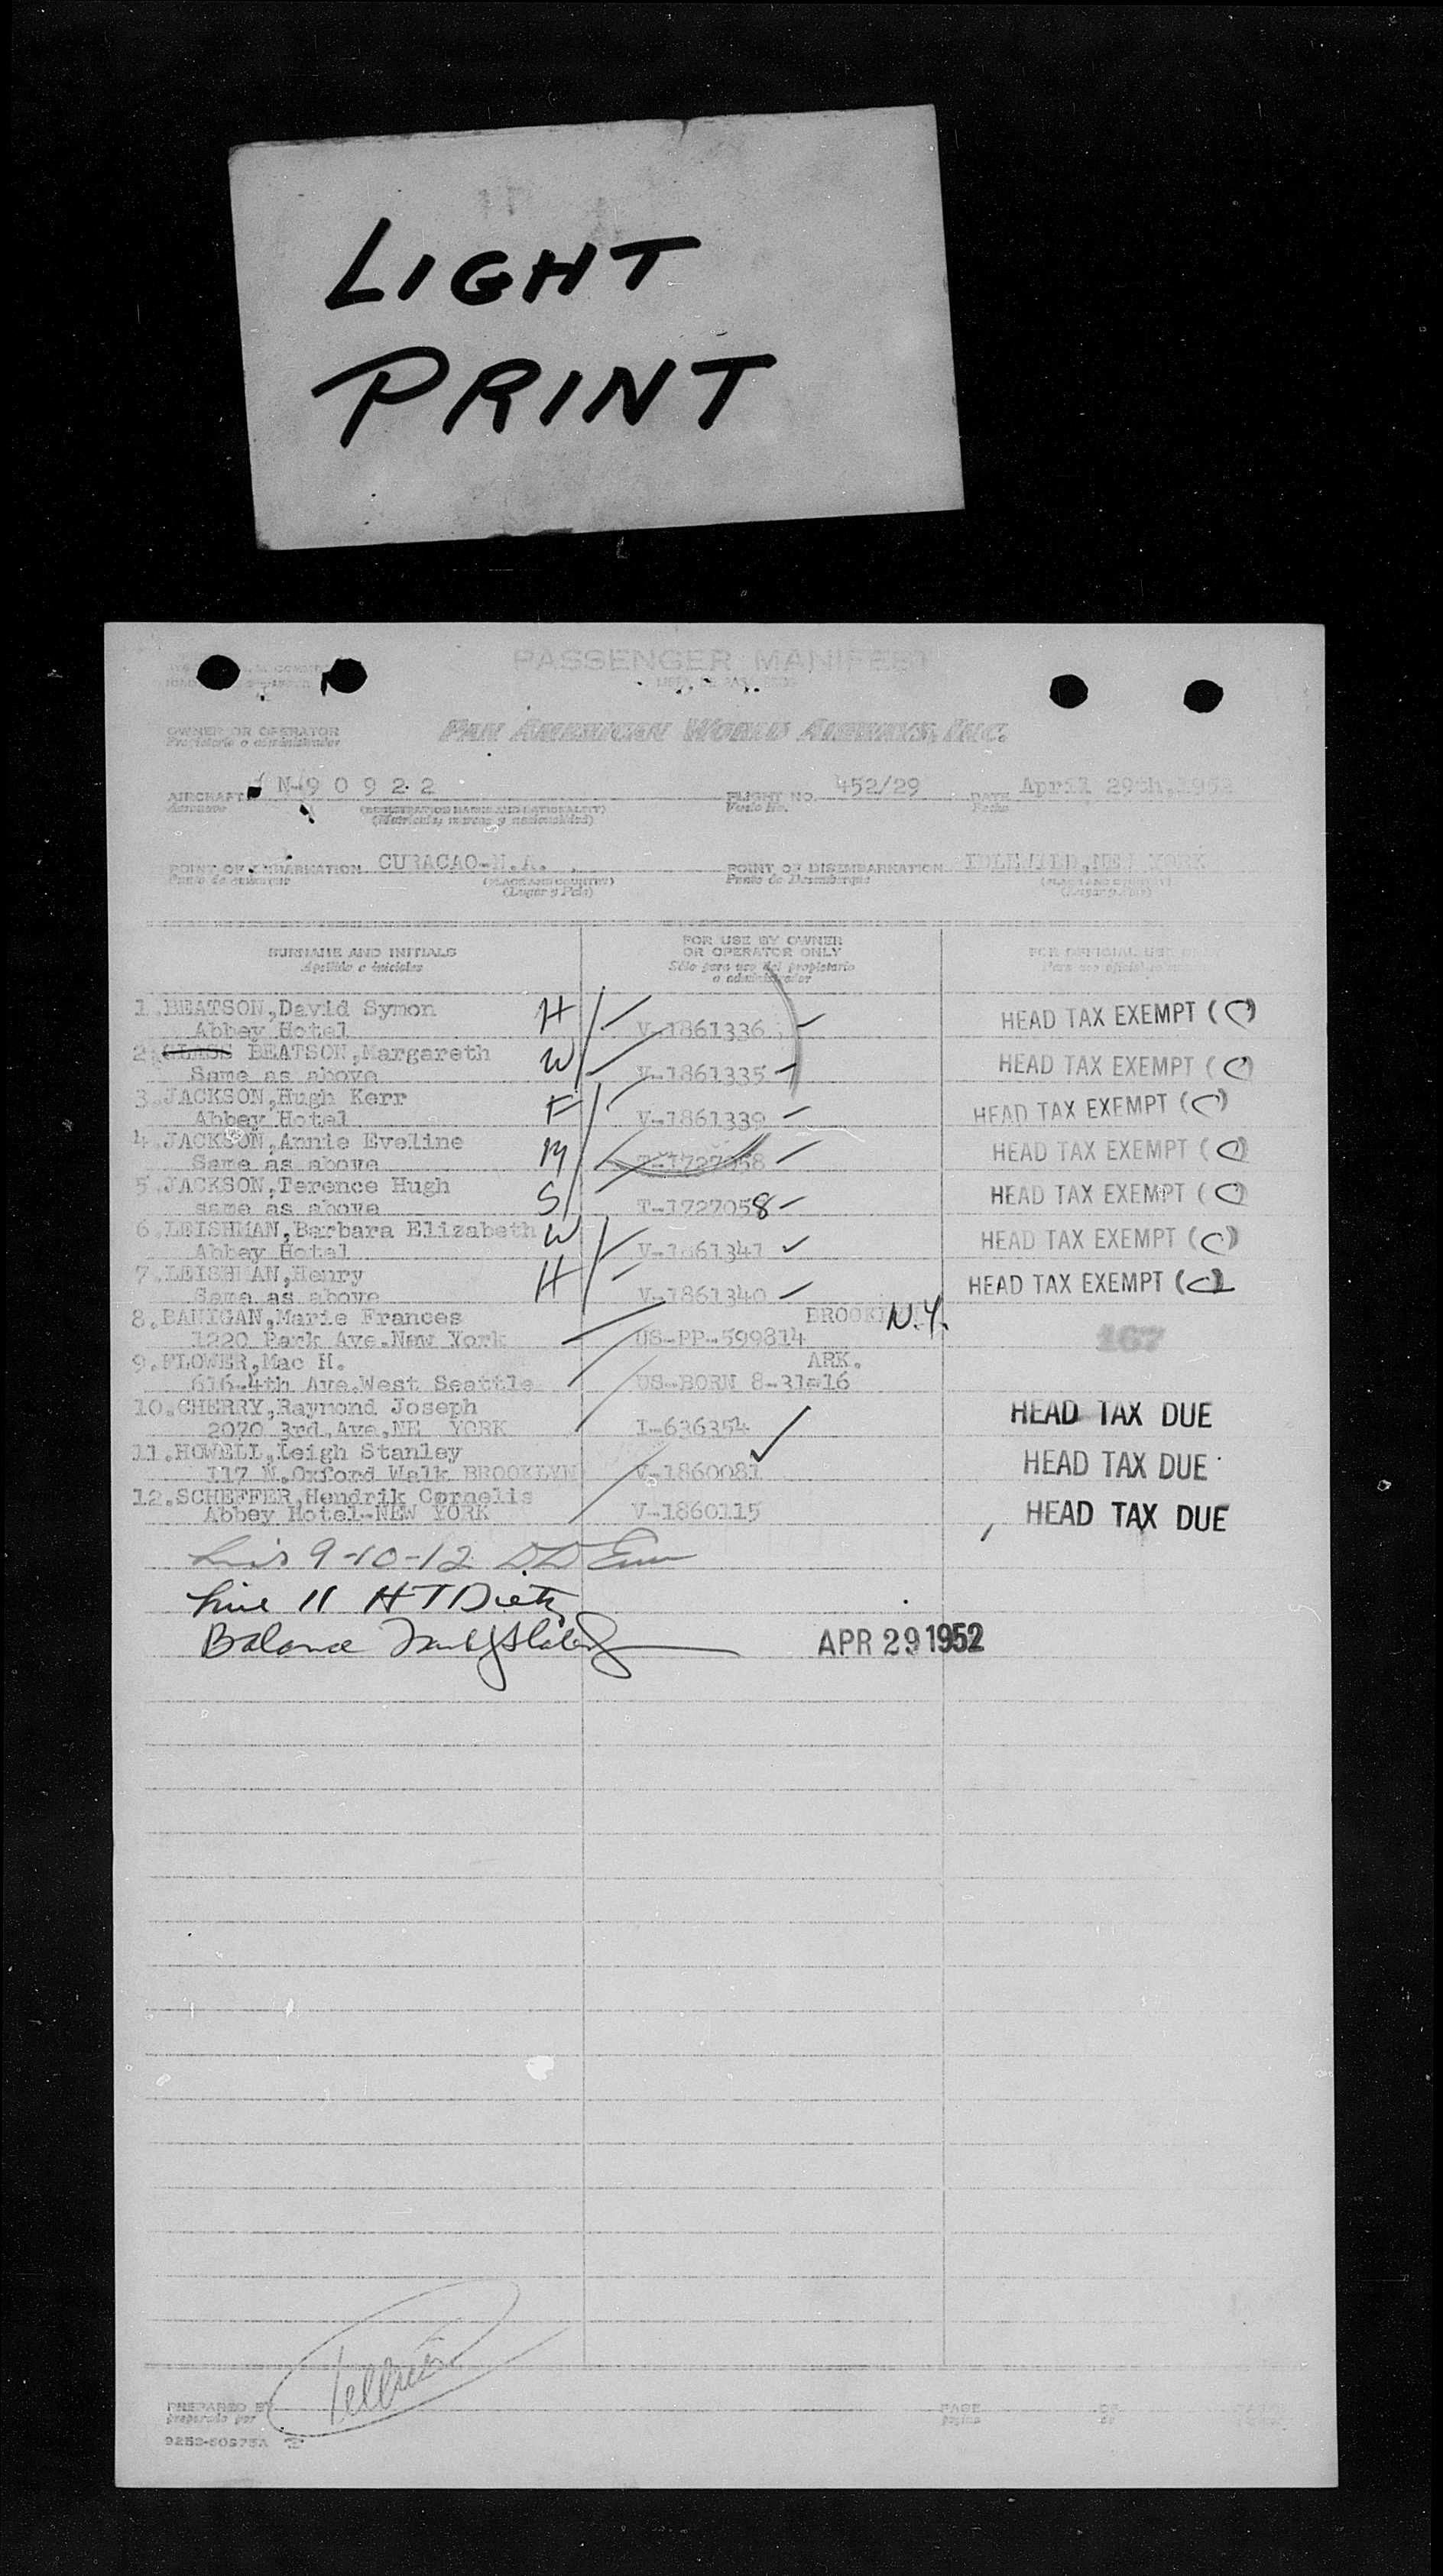 LIGHT
PRINT
PASSENGER MANIFEST
OWNER OR OPERATOR
Propietario o administrador
PAN AMERICAN WORLD AIRWAYS, INC.
AIRCRAFT N-9 0 9 2 2 FLIGHT NO. 452/29 DATE April 29th, 1952
Aeronave (REGISTRATION MARKS AND NATIONALITY) Vuelo No. Fecha
(Matrícula, marcas y nacionalidad)
POINT OF EMBARKATION CURACAO-N.A. POINT OF DISEMBARKATION IDLEWILD, NEW YORK
Punto de embarque (PLACE AND COUNTRY) Punto de Desembarque (PLACE AND COUNTRY)
(Lugar y País) (Lugar y País)
SURNAME AND INITIALS FOR USE BY OWNER OR OPERATOR ONLY FOR OFFICIAL USE
Apellido e iniciales Sólo para uso del propietario o administrador Para uso oficial
1. BEATSON, David Symon H HEAD TAX EXEMPT (C)
Abbey Hotel V-1861336
2. GLASS BEATSON, Margareth W HEAD TAX EXEMPT (C)
Same as above V-1861335
3. JACKSON, Hugh Kerr F HEAD TAX EXEMPT (C)
Abbey Hotel V-1861339
4. JACKSON, Annie Eveline M HEAD TAX EXEMPT (C)
Same as above T-1727058
5. JACKSON, Terence Hugh S HEAD TAX EXEMPT (C)
same as above T-1727058
6. LEISHMAN, Barbara Elizabeth W HEAD TAX EXEMPT (C)
Abbey Hotel V-1861341
7. LEISHMAN, Henry H HEAD TAX EXEMPT (C)
Same as above V-1861340
8. BANIGAN, Marie Frances N.Y.
1220 Park Ave. New York US-PP-599814 167
9. FLOWER, Mac H. ARK.
616-4th Ave. West Seattle US-BORN 8-31-16
10. CHERRY, Raymond Joseph HEAD TAX DUE
2070 3rd. Ave, NE YORK I-636354
11. HOWELL, Leigh Stanley HEAD TAX DUE
117 N. Oxford Walk BROOKLYN V-1860081
12. SCHEFFER, Hendrik Cornelis HEAD TAX DUE
Abbey Hotel-NEW YORK V-1860115
9-10-12
Line 11 H T Dietz
Balance
APR 29 1952
PREPARED BY PAGE OF
preparado por página de
9252-50975A